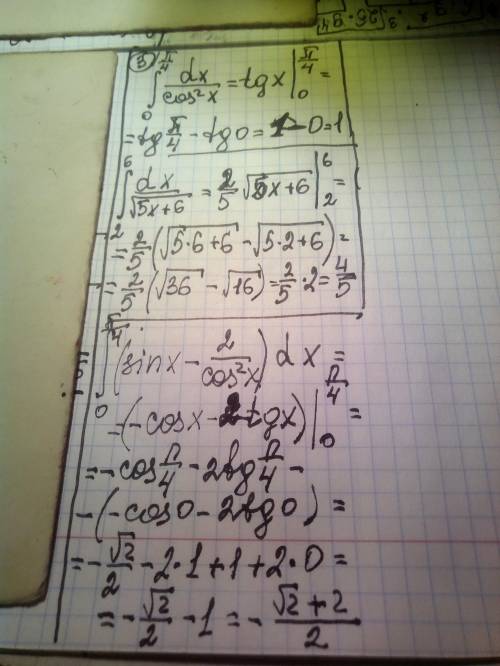 ③ ∫₀^{π/4} dx/cos²x = tgx |₀^{π/4} =
= tg π/4 - tg0 = 1-0=1
∫₂^6 dx/√(5x+6) = 2/5 √(5x+6) |₂^6 =
= 2/5 (√(5·6+6) - √(5·2+6)) =
= 2/5 (√36 - √16) = 2/5 · 2 = 4/5
∫₀^{π/4} (sinx - 2/cos²x) dx =
= (-cosx - 2tgx) |₀^{π/4} =
= -cos π/4 - 2tg π/4 -
-(-cos0 - 2tg0) =
= -√2/2 - 2·1+1+2·0 =
= -√2/2 - 1 = - (√2+2)/2